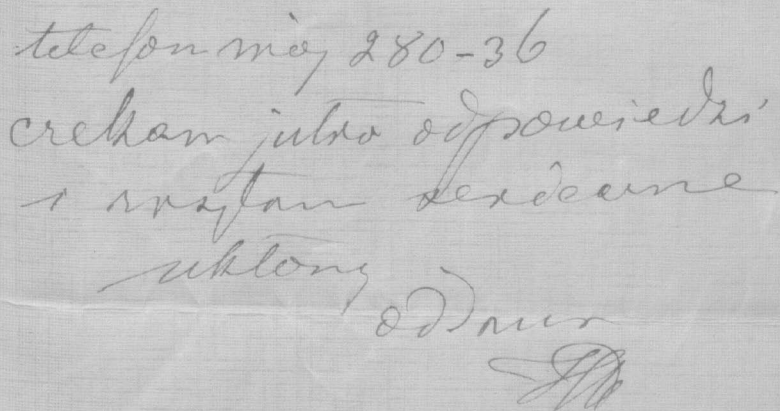 telefon mój 280-36
czekam jutro odpowiedzi
i serdeczne
ukłony
oddany